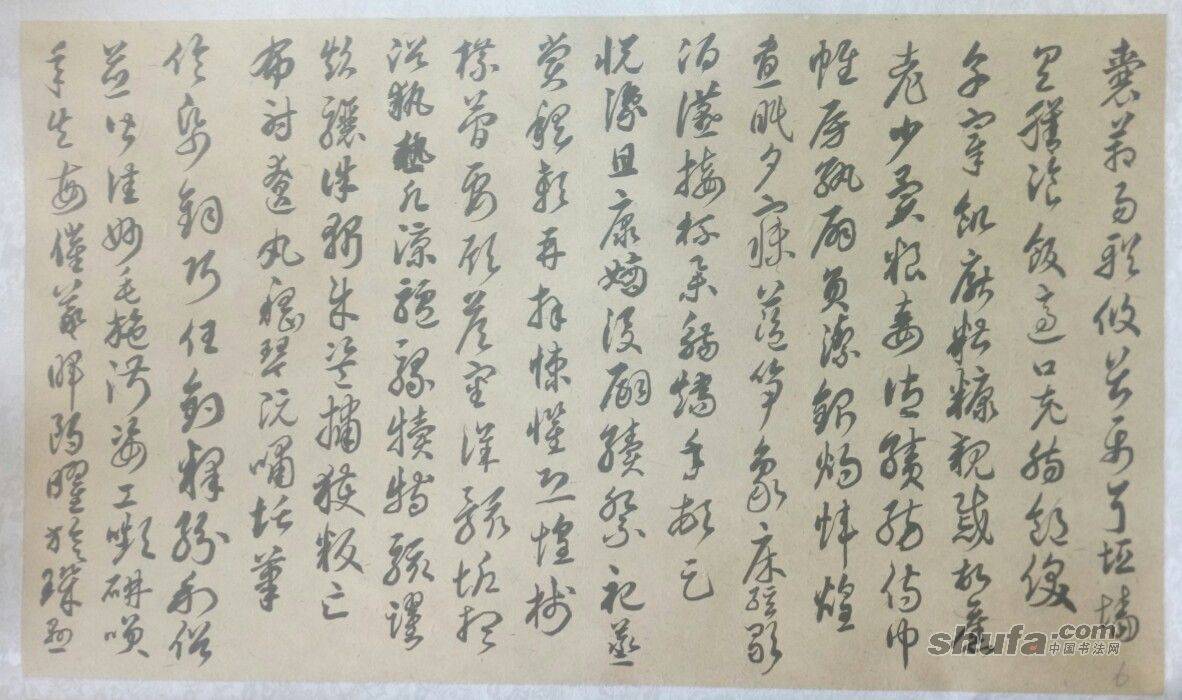 囊箱易輶攸畏屬耳垣墻
具膳飡飯適口充腸飽飫
烹宰飢厭糟糠親戚故舊
老少異糧妾御績紡侍巾
帷房紈扇員潔銀燭煒煌
晝眠夕寐藍筍象床弦歌
酒讌接杯舉觴矯手頓足
悅豫且康嫡後嗣續祭祀蒸
嘗稽顙再拜悚懼恐惶牋
牒簡要顧答審詳骸垢想
浴執熱願涼驢騾犢特駭躍
超驤誅斬賊盜捕獲叛亡
布射遼丸嵇琴阮嘯恬筆
倫紙鈞巧任釣釋紛利俗
並皆佳妙毛施淑姿工顰妍笑
年矢每催羲暉朗曜旋璣懸
shufa.com
中国书法网
6